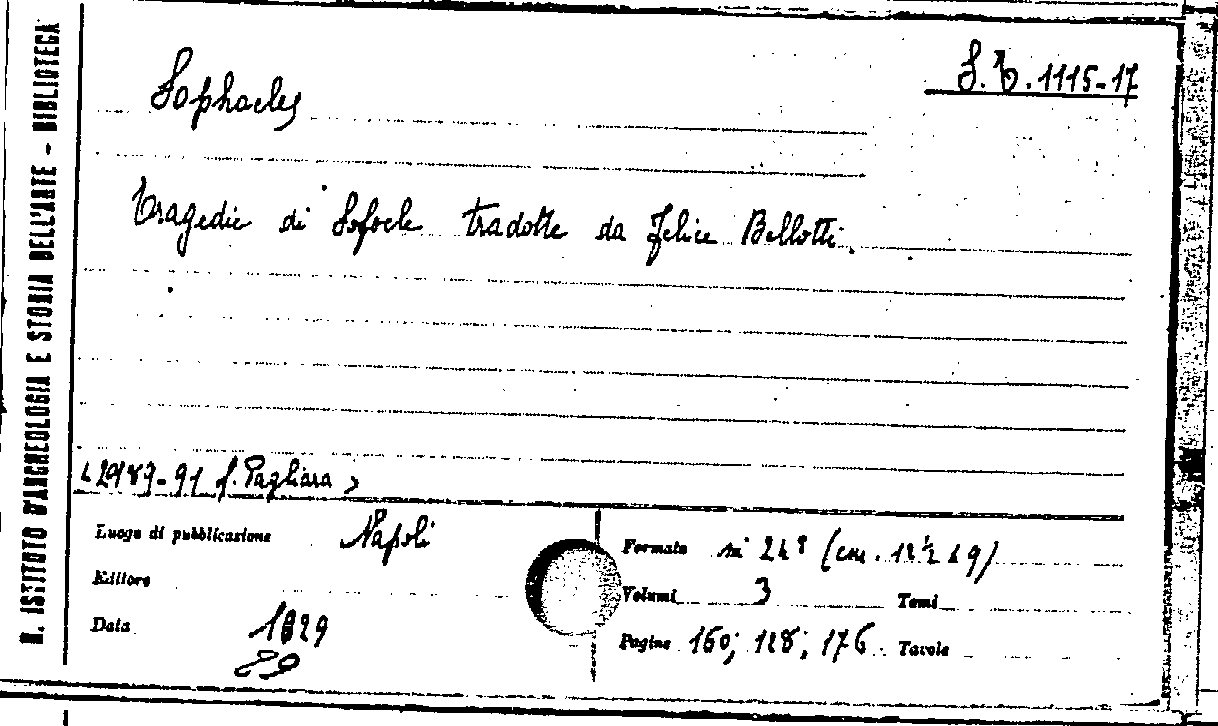 R. ISTITUTO D'ARCHEOLOGIA E STORIA DELL'ARTE - BIBLIOTECA
Sophocles
1115-17
Tragedie di Sofocle tradotte da Felice Bellotti.
f. Pagliara >
Luogo di pubblicazione Napoli
Editore
Data 1829
89
Formato in 24° (cm. 12½ x 9)
Volumi 3 Tomi
Pagine 160; 128; 176 Tavole